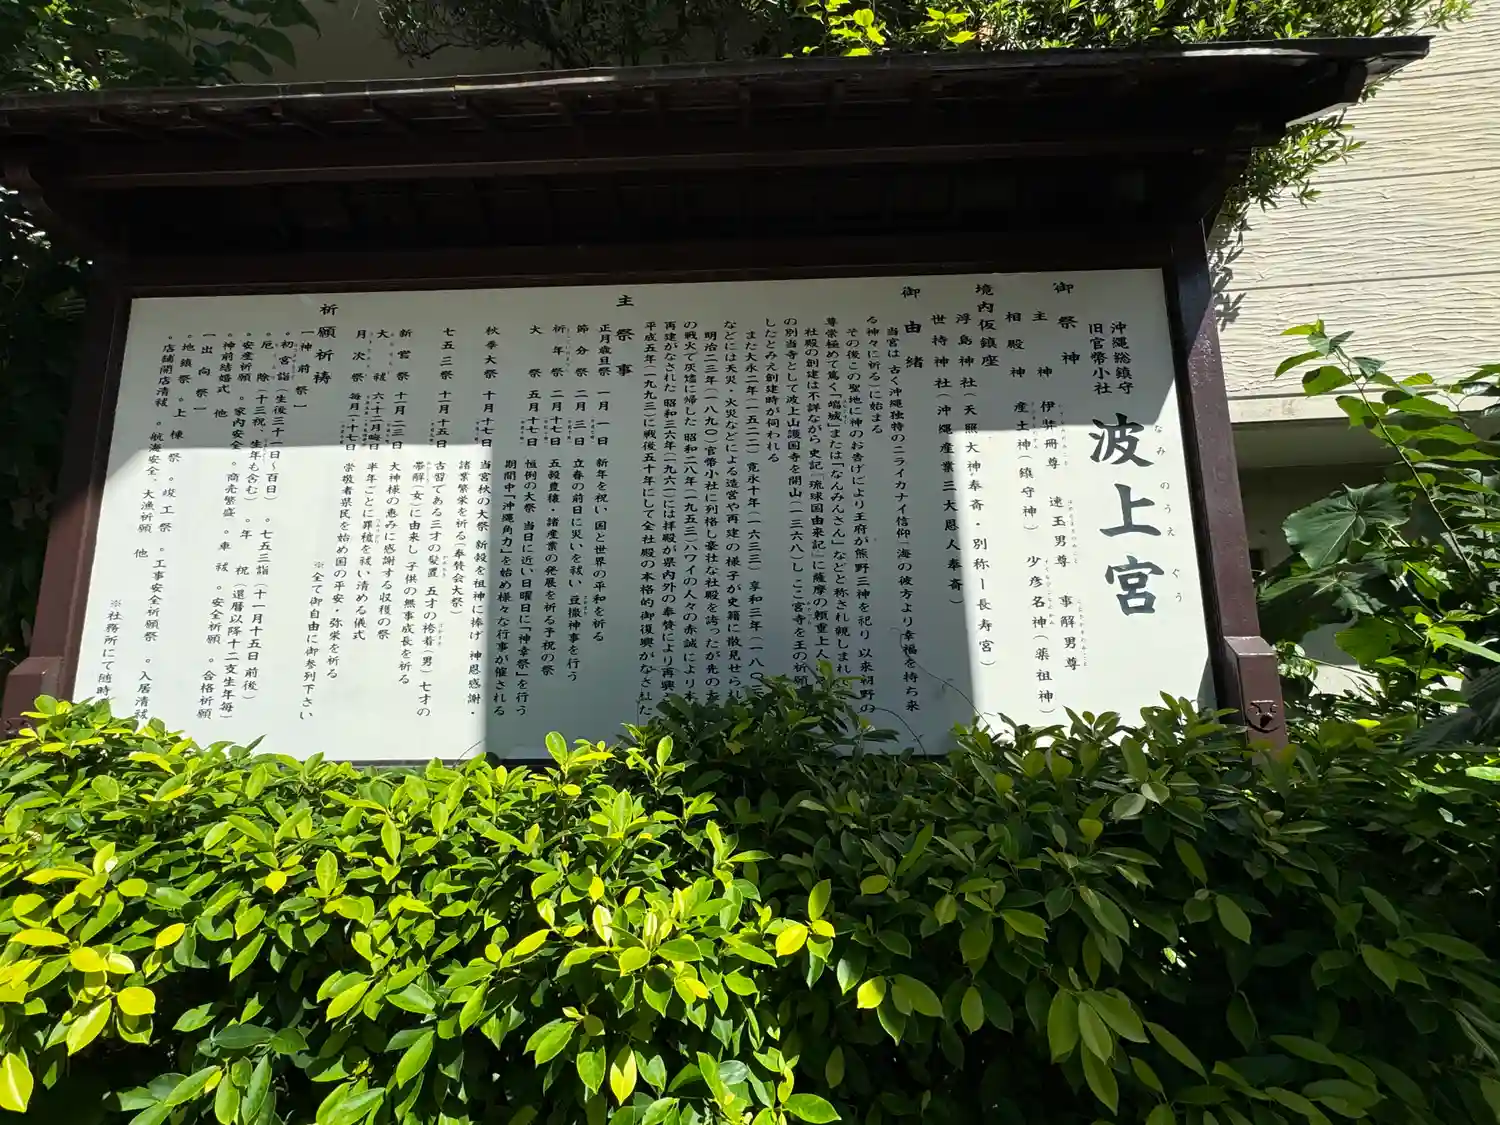 沖縄総鎮守
旧官幣小社
波上宮
なみのうえぐう
御祭神
主神 伊弉冊尊 速玉男尊 事解男尊
相殿神 産土神(鎮守神) 少彦名神(薬祖神)
境内仮鎮座
浮島神社(天照大神奉斎・別称ー長寿宮)
世持神社(沖縄産業三大恩人奉斎)
御由緒
当宮は古く沖縄独特のニライカナイ信仰「海の彼方より幸福を持ち来
る神々に祈る」に始まる
その後この聖地に神のお告げにより王府が熊野三神を祀り 以来朝野の
尊崇極めて篤く「端城」または「なんみんさん」などと称され親しまれ
社殿の創建は不詳ながら史記「琉球国由来記」に薩摩の頼重上人
の別当寺として波上山護国寺を開山(一三六八)し ここ宮寺を王の祈願
したとみえ創建時が伺われる
また大永二年(一五二二) 寛永十年(一六三三) 享和三年(一八〇三
などには天災・火災などによる造営や再建の様子が史籍に散見せられ
明治二三年(一八九〇)官幣小社に列格し豪壮な社殿を誇ったが先の
の戦火で灰燼に帰した 昭和二八年(一九五三)ハワイの人々の赤誠により本
再建がなされた 昭和三六年(一九六一)には拝殿が県内外の奉賛により再興
平成五年(一九九三)に戦後五十年にして全社殿の本格的御復興がなされた
主祭事
正月歳旦祭 一月一日 新年を祝い国と世界の平和を祈る
節分祭 二月三日 立春の前日に災いを祓い 豆撒神事を行う
祈年祭 二月十七日 五穀豊穣・諸産業の発展を祈る予祝の祭
大祭 五月十七日 恒例の大祭 当日に近い日曜日に「神幸祭」を行う
期間中「沖縄角力」を始め様々な行事が催される
秋季大祭 十月十七日 当宮秋の大祭 新穀を祖神に捧げ 神恩感謝・
諸業繁栄を祈る(奉賛会大祭)
七五三祭 十一月十五日 古習である三才の髪置 五才の袴着(男)七才の
帯解(女)に由来し 子供の無事成長を祈る
新嘗祭 十一月二三日 大神様の恵みに感謝する収穫の祭
大祓 六・十二月晦日 半年ごとに罪穢を祓い清める儀式
月次祭 毎月一・十七日 崇敬者県民を始め国の平安・弥栄を祈る
※全て御自由に御参列下さい
祈願祈祷
【神前祭】
。初宮詣(生後三十一日〜百日) 。七五三詣(十一月十五日前後)
。厄除(十三祝、生年も含む) 。年祝(還暦以降十二支生年毎)
。安産祈願 。家内安全 。商売繁盛 。車祓 。安全祈願 。合格祈願
。神前結婚式 他
【出向祭】
。地鎮祭 。上棟祭 。竣工祭 。工事安全祈願祭 。入居清祓
。店舗開店清祓 。航海安全、大漁祈願 他
※社務所にて随時